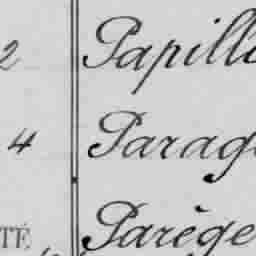 2 Papill
4 Parag
TÉ Parège